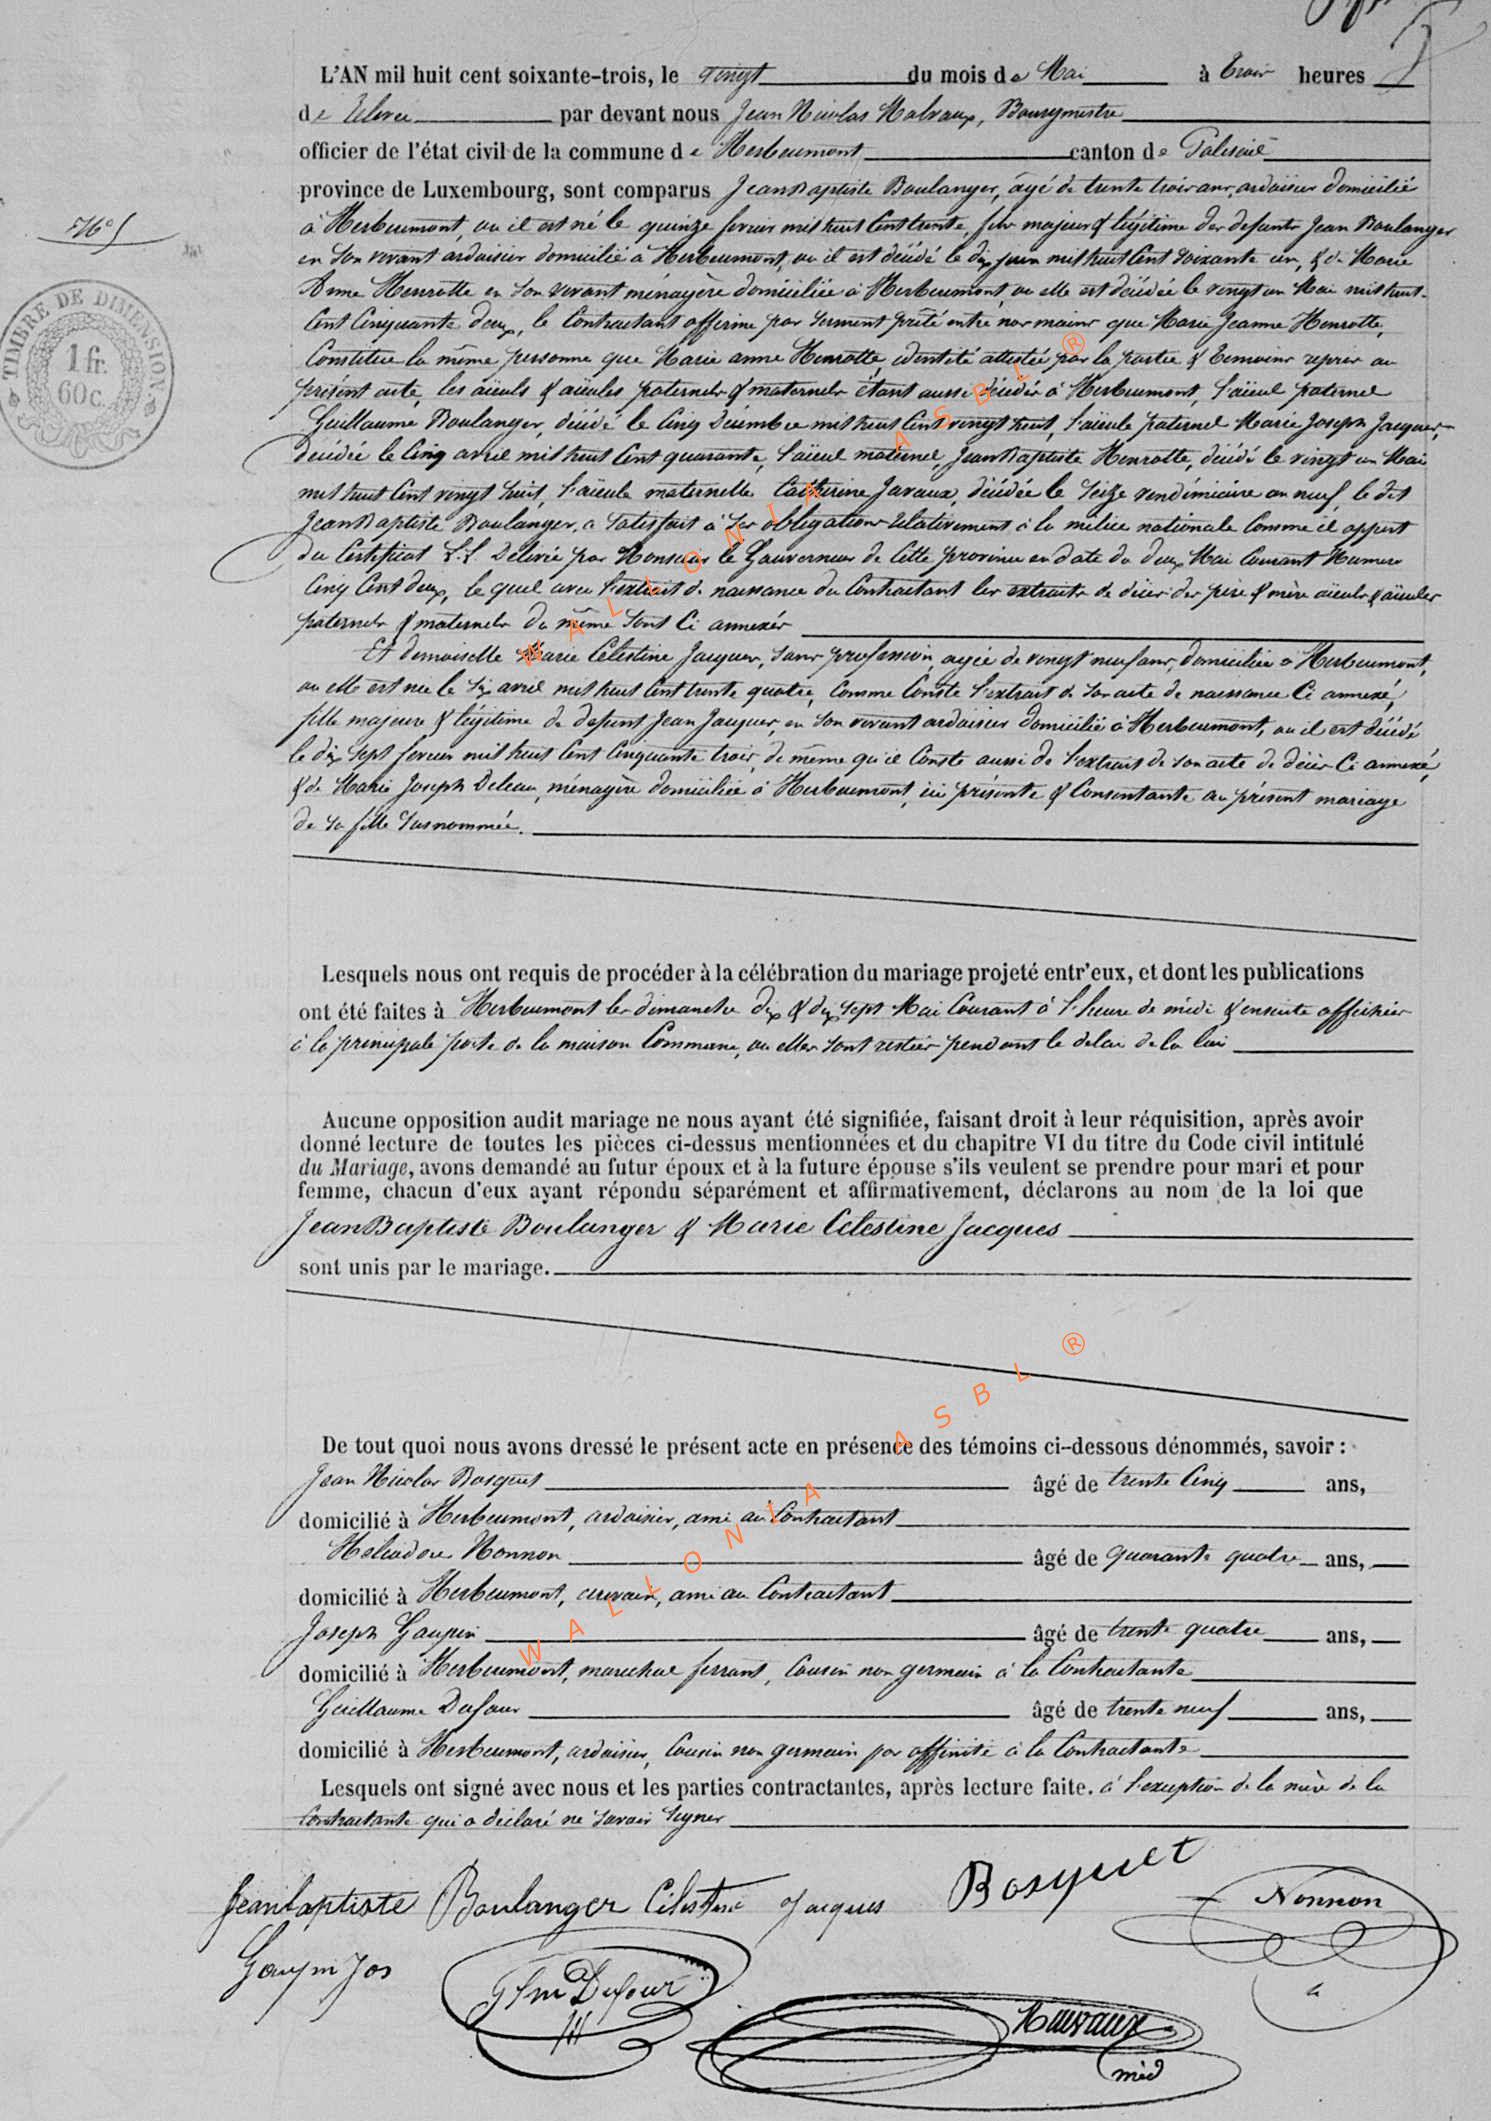 L'AN mil huit cent soixante-trois, le vingt du mois de Mai à trois heures
de relevée par devant nous Jean Nicolas Malvaux, Bourgmestre
officier de l'état civil de la commune de Herbeumont canton de Paliseul
province de Luxembourg, sont comparus Jean Baptiste Boulanger, âgé de trente trois ans, ardoisier domicilié
N° 5
à Herbeumont, ou il est né le quinze fevrier mil huit Cent trente, fils majeur & légitime des defunts Jean Boulanger
en son vivant ardoisier domicilié à Herbeumont, ou il est décédé le dix juin mil huit Cent soixante un, & de Marie
Anne Henrotte en son vivant ménagère domiciliée à Herbeumont ou elle est décédée le vingt un Mai mil huit
Cent Cinquante deux, le Contractant affirme par serment prêté entre nos mains que Marie Jeanne Henrotte,
Constitue la même personne que Marie anne Henrotte identité attestée par la partie & temoins repris au
présent acte, les aïeuls & aïeules paternels & maternels étant aussi décédés à Herbeumont, l'aïeul paternel
Guillaume Boulanger, décédé le Cinq Décembre mil huit Cent vingt huit, l'aïeule paternel Marie Joseph Jacques,
décédée le Cinq avril mil huit Cent quarante, l'aïeul maternel, Jean Baptiste Henrotte, décédé le vingt un Mai
mil huit Cent vingt huit, l'aïeule maternelle Catherine Javaux, décédée le seize vendémiaire an neuf, le dit
Jean Baptiste Boulanger, a satisfait à ses obligations relativement à la milice nationale Comme il appert
du Certificat L.L délivré par Monsieur le Gouverneur de Cette province en date du deux Mai Courant Numero
Cinq Cent deux, le quel avec l'extrait de naissance du Contractant les extraits de décès des père & mère aïeuls & aïeules
paternels & maternels du même sont Ci annexés
Et demoiselle Marie Celestine Jacques, sans profession, agée de vingt neuf ans, domiciliée à Herbeumont,
ou elle est née le six avril mil huit Cent trente quatre, Comme Conste l'extrait de son acte de naissance Ci annexé,
fille majeure & légitime de defunt Jean Jacques, en son vivant ardoisier domicilié à Herbeumont, ou il est décédé
le dix sept fevrier mil huit Cent Cinquante trois, de même qu'il Conste aussi de l'extrait de son acte de décès Ci annexé,
& de Marie Joseph Deleau, ménagère domiciliée à Herbeumont, ici présente & Consentante au présent mariage
de sa fille susnommée.
TIMBRE DE DIMENSION.
1 fr.
60 c.
Lesquels nous ont requis de procéder à la célébration du mariage projeté entr'eux, et dont les publications
ont été faites à Herbeumont les dimanche dix & dix sept Mai Courant à l'heure de midi & ensuite affichées
à la principale porte de la maison Commune, ou elles sont restées pendant le delai de la loi
Aucune opposition audit mariage ne nous ayant été signifiée, faisant droit à leur réquisition, après avoir
donné lecture de toutes les pièces ci-dessus mentionnées et du chapitre VI du titre du Code civil intitulé
du Mariage, avons demandé au futur époux et à la future épouse s'ils veulent se prendre pour mari et pour
femme, chacun d'eux ayant répondu séparément et affirmativement, déclarons au nom de la loi que
Jean Baptiste Boulanger & Marie Celestine Jacques
sont unis par le mariage.
De tout quoi nous avons dressé le présent acte en présence des témoins ci-dessous dénommés, savoir :
Jean Nicolas Bosquet âgé de trente Cinq ans,
domicilié à Herbeumont, ardoisier, ami au Contractant
Heliodore Nonnon âgé de quarante quatre ans,
domicilié à Herbeumont, ami au Contractant
Joseph Goupin âgé de trente quatre ans,
domicilié à Herbeumont, marechal ferrant, Cousin non germain à la Contractante
Guillaume Dufour âgé de trente neuf ans,
domicilié à Herbeumont, ardoisier, Cousin non germain par affinité à la Contractante
Lesquels ont signé avec nous et les parties contractantes, après lecture faite. à l'exception de la mère de la
Contractante qui a déclaré ne savoir signer
Jeanbaptiste Boulanger Célestine Jacques Bosquet Nonnon
Goupin Jos Glme Dufour Malvaux
WALLONIA ASBL ®
WALLONIA ASBL ®